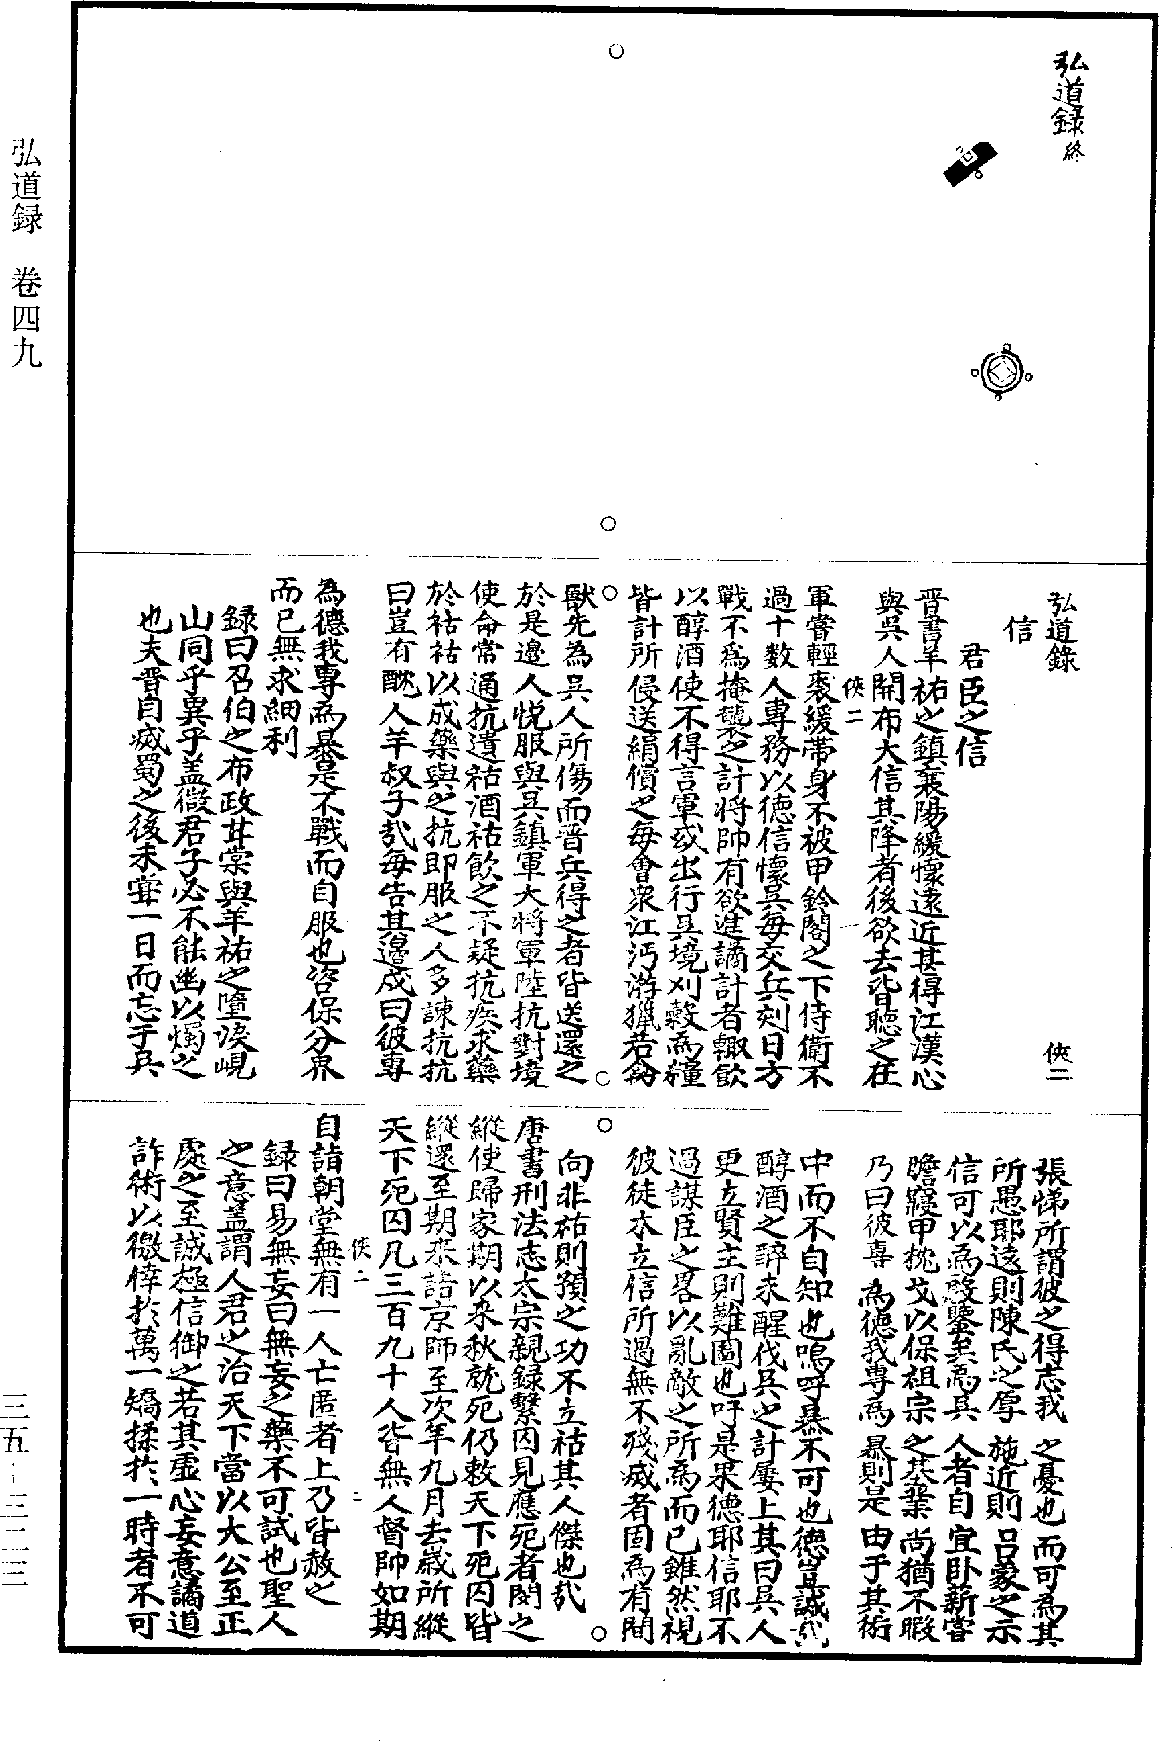 弘道録終
弘道録
俠二
信
君臣之信
晉書羊祜之鎮襄陽緩懷遠近甚得江漢心
與吳人開布大信其降者後欲去皆聽之在
俠二
軍嘗輕裘緩帶身不被甲鈴閣之下侍衛不
過十數人專務以德信懷吳每交兵刻日方
戰不爲掩襲之計將帥有欲進譎計者輒飲
以醇酒使不得言軍或出行吳境刈穀爲糧
皆計所侵送絹償之每會衆江沔游獵若禽
獸先爲吳人所傷而晉兵得之者皆送還之
於是邊人悅服與吳鎮軍大將軍陸抗對境
使命常通抗遺祜酒祜飲之不疑抗疾求藥
於祜祜以成藥與之抗即服之人多諫抗抗
曰豈有酖人羊叔子哉每告其邊戍曰彼專
為德我專為暴是不戰而自服也咨保分界
而已無求細利
録曰召伯之布政甘棠與羊祜之墮淚峴
山同乎異乎蓋微君子必不能幽以燭之
也夫晋自威蜀之後未嘗一日而忘于兵
張悌所謂彼之得志我之憂也而可為其
所愚耶遠則陳氏之厚施近則呂蒙之示
信可以為殷鑒矣為吳人者自宜臥薪嘗
膽寢甲枕戈以保祖宗之基業尚猶不暇
乃曰彼喜為德我專為暴則是由于其術
中而不自知也嗚呼暴不可也德豈誠哉
醇酒之醉求醒伐吳之計屢上其曰吳人
更立賢主則難圖也吁是果德耶信耶不
過謀臣之畧以亂敵之所為而已雖然視
彼徒木立信所過無不殘威者固為有間
向非祐則預之功不立祜其人傑也哉
唐書刑法志太宗親録繫囚見應死者閔之
縱使歸家期以来秋就死仍敕天下死囚皆
縱還至期来詣京師至次年九月去歲所縱
天下死囚凡三百九十人皆無人督帥如期
自詣朝堂無有一人亡匿者上乃皆赦之
俠二
二
録曰易無妄曰無妄之藥不可試也聖人
之意蓋謂人君之治天下當以大公至正
處之至誠極信御之若其虛心妄意譎道
詐術以徼倖於萬一矯揉於一時者不可
弘道録　卷四九
三五-三二三